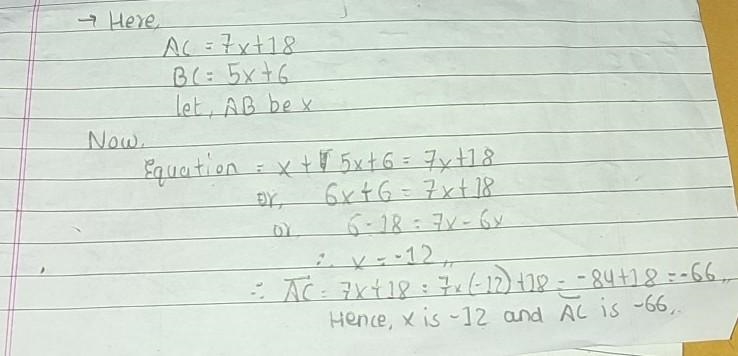 → Here,
AC = 7x+18
BC = 5x+6
let, AB be x
Now,
Equation = x + 5x+6 = 7x+18
or, 6x+6 = 7x+18
or 6-18 = 7x-6x
∴ x = -12,,
∴ AC = 7x+18 = 7x(-12)+18 = -84+18 = -66,,
Hence, x is -12 and AC is -66,,